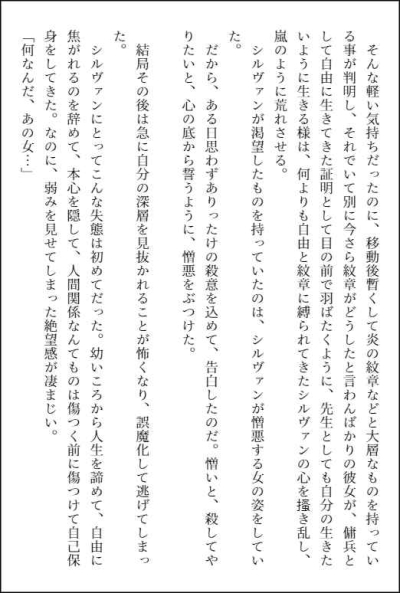 そんな軽い気持ちだったのに、移動後暫くして炎の紋章などと大層なものを持ってい
る事が判明し、それでいて別に今さら紋章がどうしたと言わんばかりの彼女が、傭兵と
して自由に生きてきた証明として目の前で羽ばたくように、先生としても自分の生きた
いように生きる様は、何よりも自由と紋章に縛られてきたシルヴァンの心を掻き乱し、
嵐のように荒れさせる。
シルヴァンが渇望したものを持っていたのは、シルヴァンが憎悪する女の姿をしてい
た。
だから、ある日思わずありったけの殺意を込めて、告白したのだ。憎いと、殺してや
りたいと、心の底から誓うように、憎悪をぶつけた。
結局その後は急に自分の深層を見抜かれることが怖くなり、誤魔化して逃げてしまっ
た。
シルヴァンにとってこんな失態は初めてだった。幼いころから人生を諦めて、自由に
焦がれるのを辞めて、本心を隠して、人間関係なんてものは傷つく前に傷つけて自己保
身をしてきた。なのに、弱みを見せてしまった絶望感が凄まじい。
「何なんだ、あの女…」